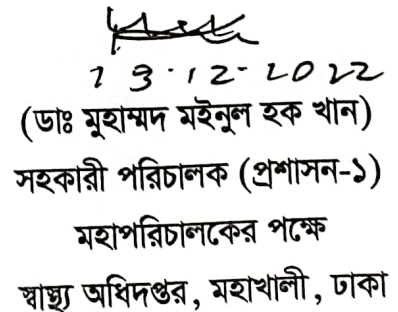 13.12.2022
(ডাঃ মুহাম্মদ মইনুল হক খান)
সহকারী পরিচালক (প্রশাসন-১)
মহাপরিচালকের পক্ষে
স্বাস্থ্য অধিদপ্তর, মহাখালী, ঢাকা